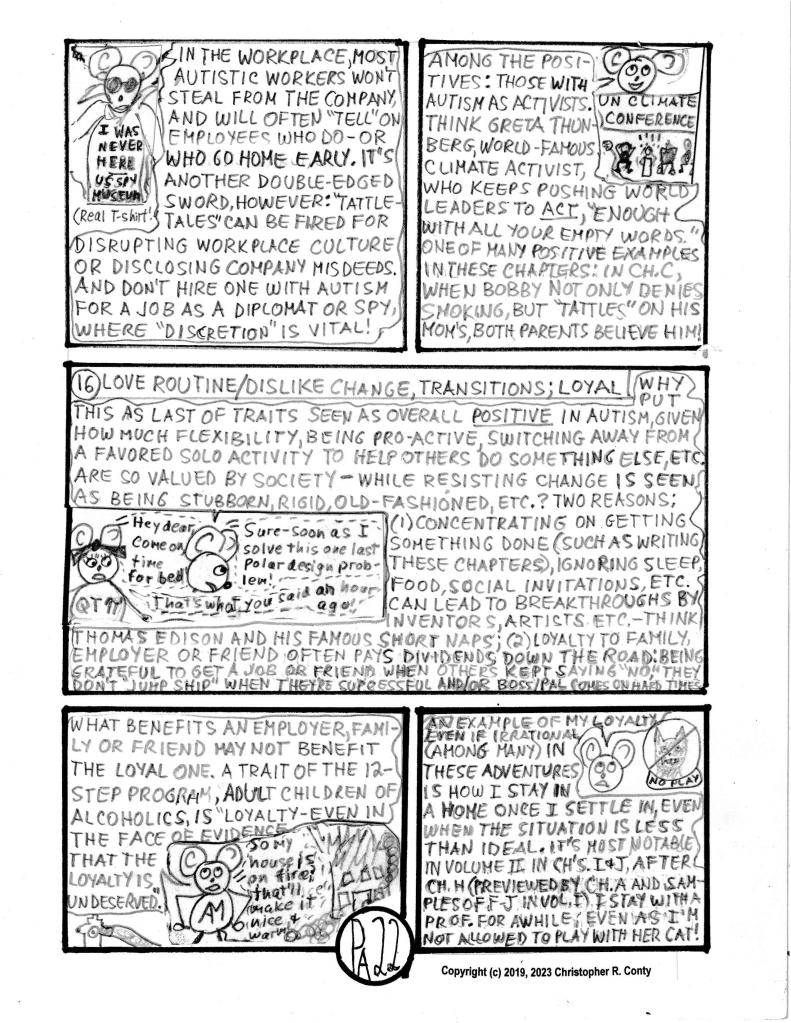 IN THE WORKPLACE, MOST
AUTISTIC WORKERS WON'T
STEAL FROM THE COMPANY,
AND WILL OFTEN "TELL" ON
EMPLOYEES WHO DO-OR
WHO GO HOME EARLY. IT'S
ANOTHER DOUBLE-EDGED
SWORD, HOWEVER: "TATTLE-
TALES" CAN BE FIRED FOR
DISRUPTING WORKPLACE CULTURE
OR DISCLOSING COMPANY MISDEEDS.
AND DON'T HIRE ONE WITH AUTISM
FOR A JOB AS A DIPLOMAT OR SPY,
WHERE "DISCRETION" IS VITAL!
I WAS
NEVER
HERE
US SPY
MUSEUM
(Real T-shirt!)
AMONG THE POSI-
TIVES: THOSE WITH
AUTISM AS ACTIVISTS.
THINK GRETA THUN-
BERG, WORLD-FAMOUS
CLIMATE ACTIVIST,
WHO KEEPS PUSHING WORLD
LEADERS TO ACT, "ENOUGH
WITH ALL YOUR EMPTY WORDS."
ONE OF MANY POSITIVE EXAMPLES
IN THESE CHAPTERS: IN CH.C,
WHEN BOBBY NOT ONLY DENIES
SMOKING, BUT "TATTLES" ON HIS
MOM'S, BOTH PARENTS BELIEVE HIM!
UN CLIMATE
CONFERENCE
!!!!
16 LOVE ROUTINE/DISLIKE CHANGE, TRANSITIONS; LOYAL
WHY
PUT
THIS AS LAST OF TRAITS SEEN AS OVERALL POSITIVE IN AUTISM, GIVEN
HOW MUCH FLEXIBILITY, BEING PRO-ACTIVE, SWITCHING AWAY FROM
A FAVORED SOLO ACTIVITY TO HELP OTHERS DO SOMETHING ELSE, ETC.
ARE SO VALUED BY SOCIETY - WHILE RESISTING CHANGE IS SEEN
AS BEING STUBBORN, RIGID, OLD-FASHIONED, ETC.? TWO REASONS;
(1) CONCENTRATING ON GETTING
SOMETHING DONE (SUCH AS WRITING
THESE CHAPTERS), IGNORING SLEEP,
FOOD, SOCIAL INVITATIONS, ETC.
CAN LEAD TO BREAKTHROUGHS BY
INVENTORS, ARTISTS ETC.-THINK
THOMAS EDISON AND HIS FAMOUS SHORT NAPS; (2) LOYALTY TO FAMILY,
EMPLOYER OR FRIEND OFTEN PAYS DIVIDENDS DOWN THE ROAD: BEING
GRATEFUL TO GET A JOB OR FRIEND WHEN OTHERS KEPT SAYING "NO," THEY
DON'T "JUMP SHIP" WHEN THEY'RE SUCCESSFUL AND/OR BOSS/PAL COMES ON HARD TIMES
Hey dear,
come on,
time
for bed!
Sure-soon as I
solve this one last
Polar design prob-
lem!
That's what you said an hour
ago!
QT π
WHAT BENEFITS AN EMPLOYER, FAMI-
LY OR FRIEND MAY NOT BENEFIT
THE LOYAL ONE. A TRAIT OF THE 12-
STEP PROGRAM, ADULT CHILDREN OF
ALCOHOLICS, IS "LOYALTY-EVEN IN
THE FACE OF EVIDENCE
THAT THE
LOYALTY IS
UNDESERVED."
So my
house is
on fire;
that'll
make it
nice &
warm!
AM
AN EXAMPLE OF MY LOYALTY
EVEN IF IRRATIONAL
(AMONG MANY) IN
THESE ADVENTURES
IS HOW I STAY IN
A HOME ONCE I SETTLE IN, EVEN
WHEN THE SITUATION IS LESS
THAN IDEAL. IT'S MOST NOTABLE
IN VOLUME II IN CH'S. I & J, AFTER
CH. H (PREVIEWED BY CH. A AND SAM-
PLES OF F-J IN VOL. I). I STAY WITH A
PROF. FOR AWHILE, EVEN AS I'M
NOT ALLOWED TO PLAY WITH HER CAT!
NO PLAY
PA22
Copyright (c) 2019, 2023 Christopher R. Conty